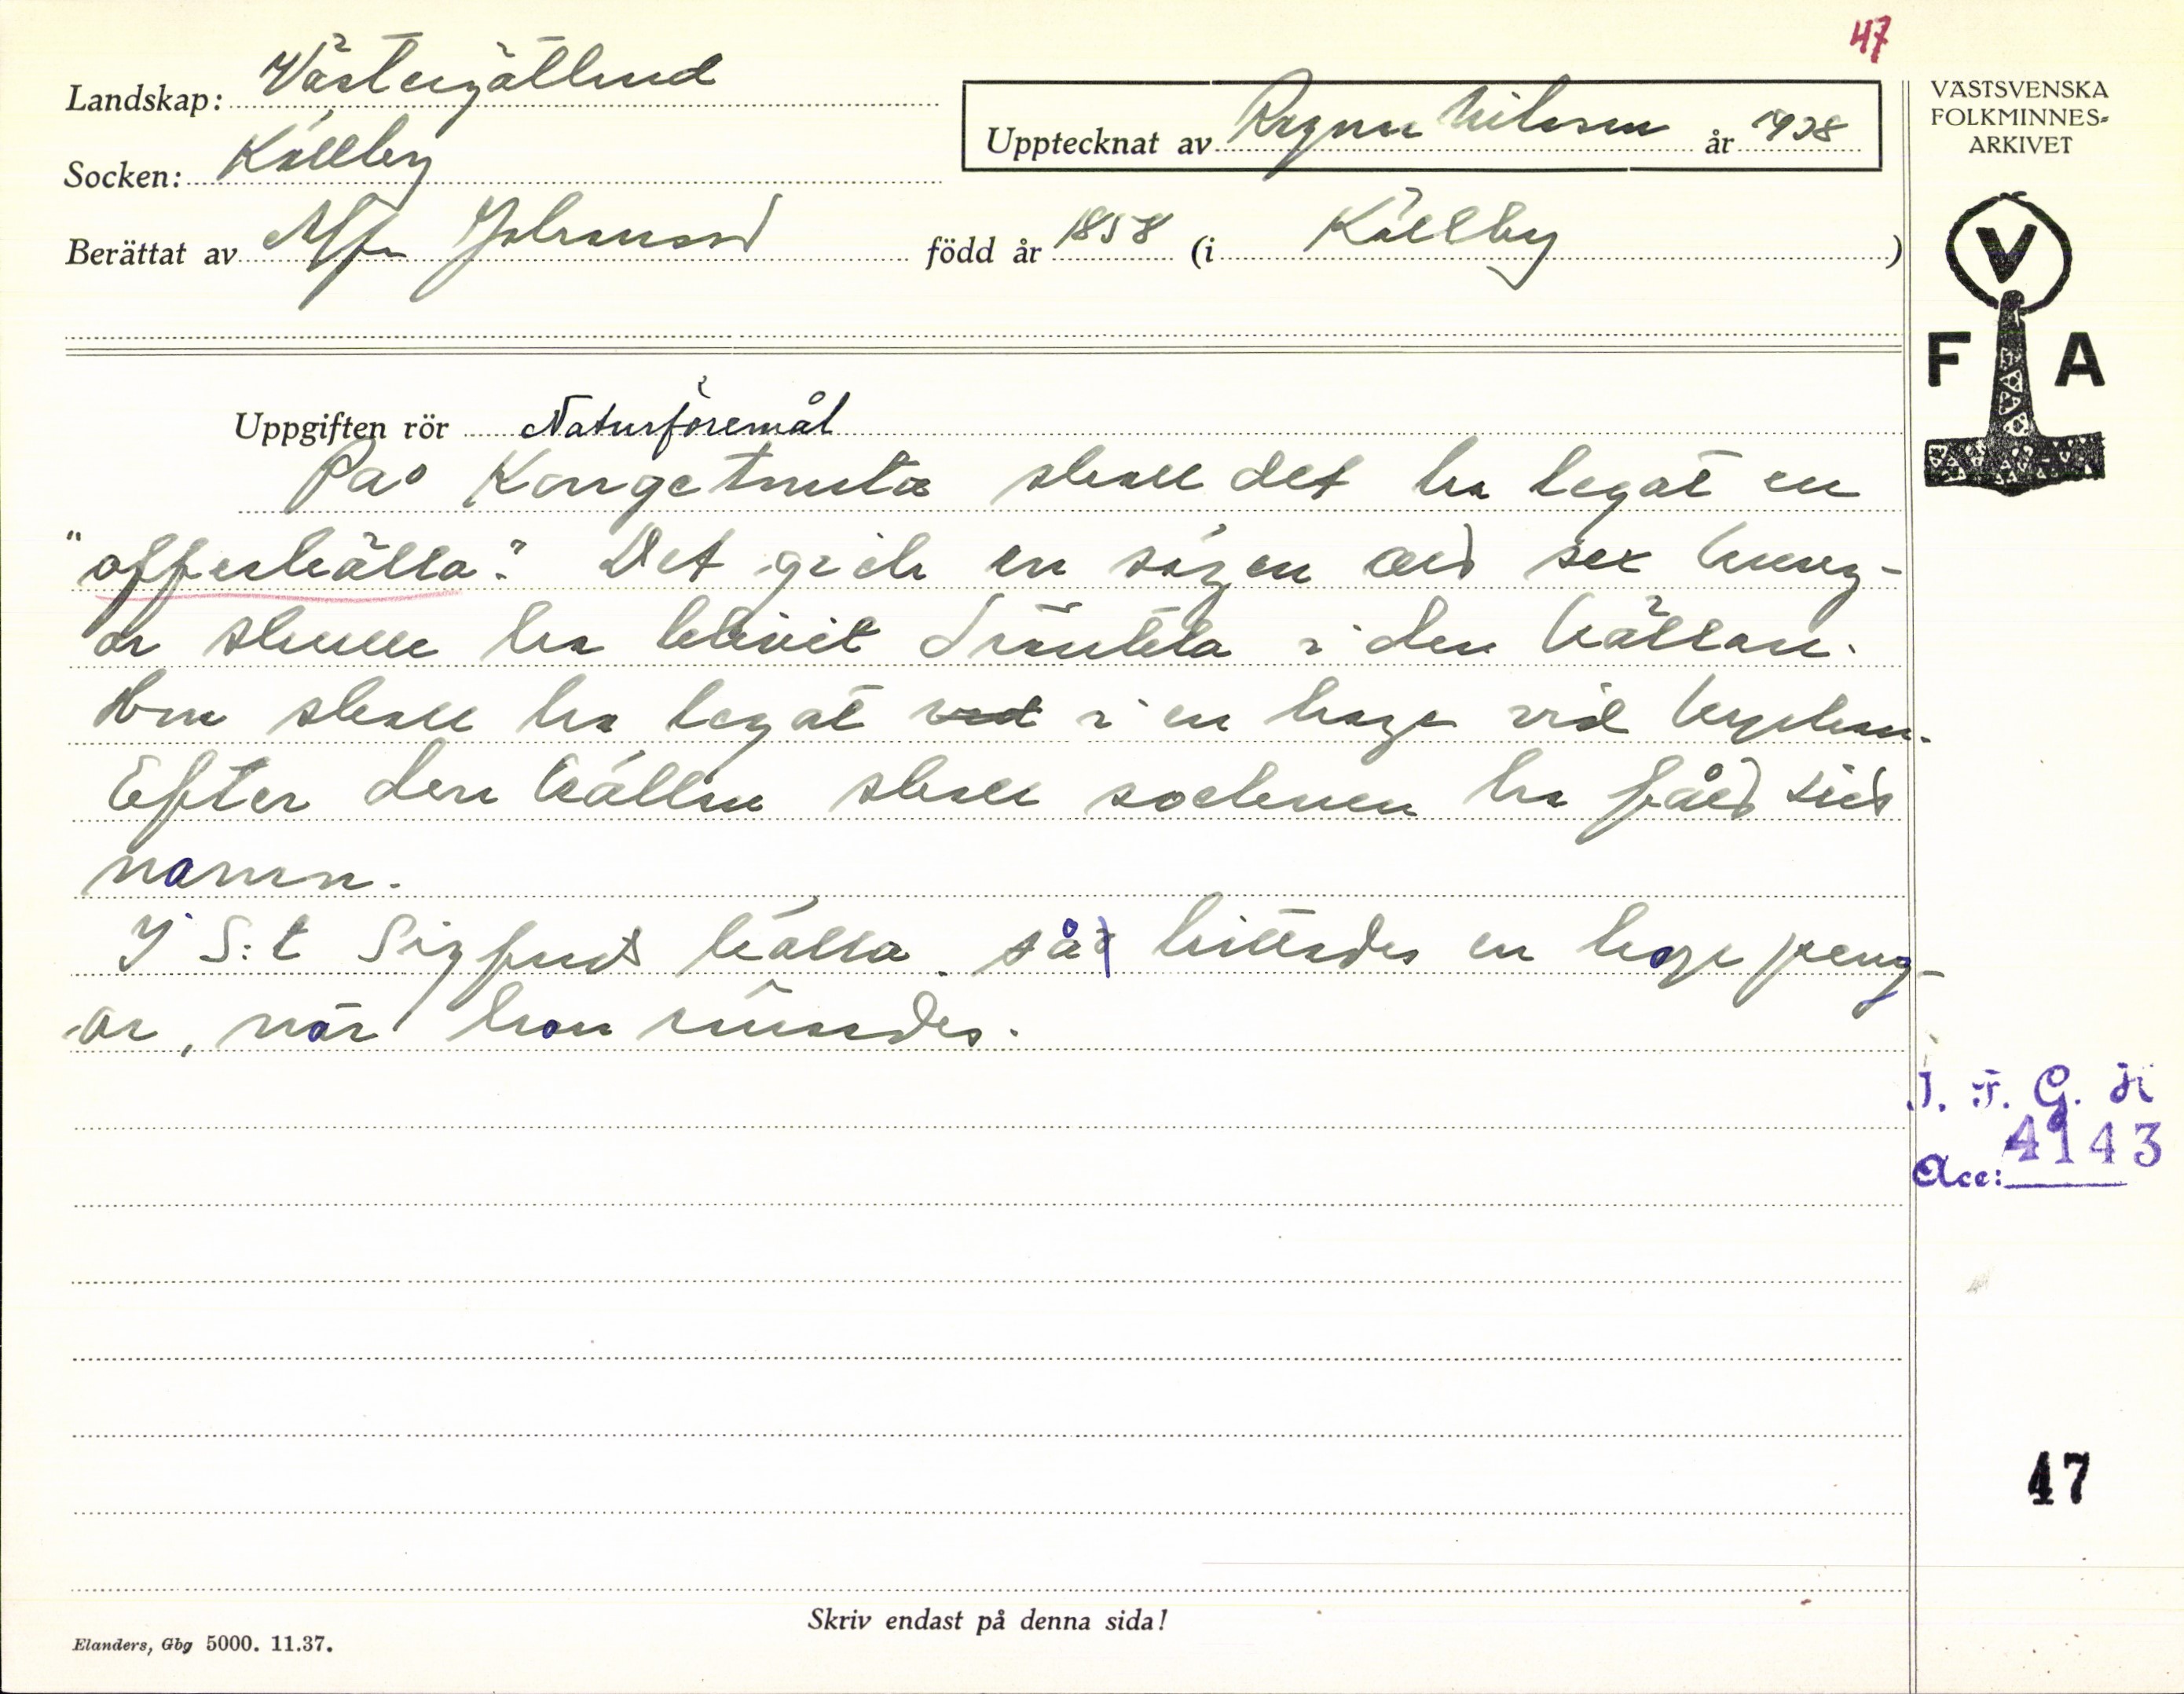 47
Landskap: Västergötland
Upptecknat av Ragnar Nilsson år 1938
VÄSTSVENSKA
FOLKMINNES-
ARKIVET
Socken: Källby
Berättat av Johansson född år 1858 (i Källby)
V
F A
Uppgiften rör Naturföremål
På skall det ha legat en
"offerkälla". Det gick en sägen att sex kung-
ar skulle ha blivit dränkta i den källan.
Den skall ha legat ved i en hage vid kyrkan.
Efter den källan skall socknen ha fått sitt
namn.
I S:t Sigfrids källa så hittades en hop peng-
ar, när han rensades.
I. F. G. H
4143
Acc:
47
Skriv endast på denna sida!
Elanders, Gbg 5000. 11.37.